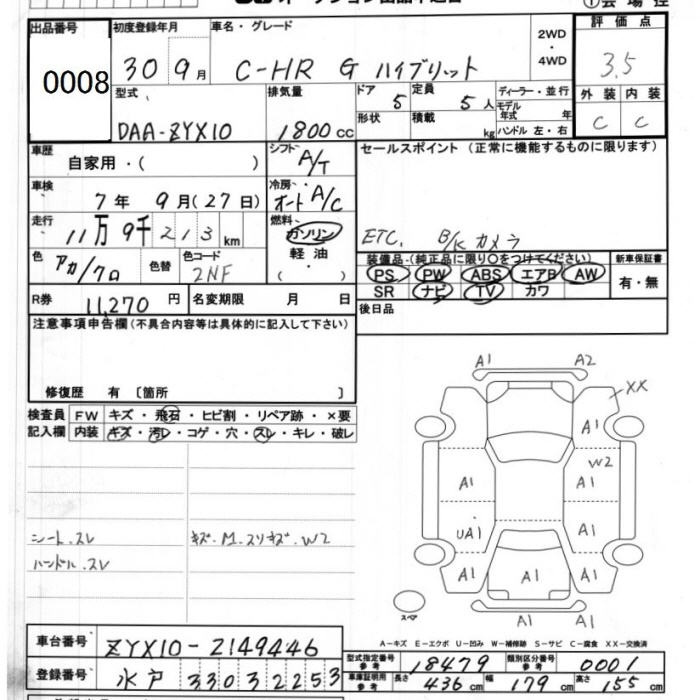 オークション出品申込書
①会場控
出品番号
初度登録年月
車名・グレード
2WD・4WD
評価点
0008
30 9月
C-HR G ハイブリット
3.5
型式
排気量
ドア 5
定員 5人
ディーラー・並行
外装
内装
DAA-ZYX10
1800cc
形状
積載 kg
モデル年式 年
ハンドル 左・右
C
C
車歴
自家用・( )
シフト A/T
セールスポイント (正常に機能するものに限ります)
車検
7年 9月(27日)
冷房 オート A/C
走行
11万9千213km
燃料
ガソリン
軽油
( )
ETC. B/Kカメラ
色
アカ/クロ
色替
色コード
2NF
装備品(純正品に限り○をつけてください)
新車保証書
PS PW ABS エアB AW
有・無
SR ナビ TV カワ
R券
11,270円
名変期限 月 日
後日品
注意事項申告欄(不具合内容等は具体的に記入して下さい)
修復歴 有 〔箇所 〕
検査員記入欄
FW キズ・飛石・ヒビ割・リペア跡・×要
内装 キズ・汚レ・コゲ・穴・スレ・キレ・破レ
シート.スレ
キズ.M.スリキズ.W2
ハンドル.スレ
A1
A2
XX
A1
W2
A1
A1
UA1
A1
A1
A1
A1
A1
A1
スペア
A-キズ E-エクボ U-凹み W-補修跡 S-サビ C-腐食 XX-交換済
車台番号
ZYX10-2149446
型式指定番号 参考
18479
類別区分番号 参考
0001
登録番号
水戸 330 3 2253
車庫証明用 参考
長さ 436cm
幅 179cm
高さ 155cm